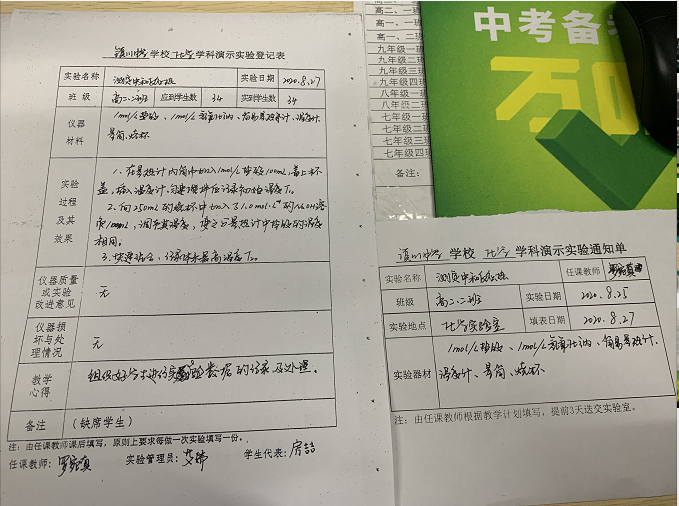 学校 化学 学科演示实验登记表
实验名称 测定中和反应热 实验日期 2020.8.27
班 级 高二.二班 应到学生数 34 实到学生数 34
仪器
材料
1mol/L盐酸、1mol/L氢氧化钠、简易量热计、温度计、
量筒、烧杯
实验
过程
及其
效果
1、在量热计内筒中加入1mol/L盐酸100mL,盖上杯
盖,插入温度计,匀速搅拌后记录初始温度T₁。
2、向250mL的烧杯中加入 1.0mol·L⁻¹的NaOH溶
液100mL,调节其温度,使之与量热计中盐酸的温度
相同。
3、快速混合、记录体系最高温度T₂。
仪器质量
或实验
改进意见
无
仪器损
坏与处
理情况
无
教学
心得
组织好学生进行实验数据的记录及处理。
备注 (缺席学生)
注:由任课教师课后填写,原则上要求每做一次实验填写一份。
任课教师: 实验管理员: 学生代表:
高二、二班
九年级一班
九年级二班
九年级三班
九年级四班
八年级一班
八年级二班
七年级一班
七年级二班
七年级三班
七年级四班
备注:
中考备
学校 化学 学科演示实验通知单
实验名称 测定中和反应热 任课教师
班级 高二.二班 实验日期 2020.8.25
实验地点 化学实验室 填表日期 2020.8.27
实验器材
1mol/L盐酸、1mol/L氢氧化钠、简易量热计、
温度计、量筒、烧杯
注:由任课教师根据教学计划填写,提前3天送交实验室。